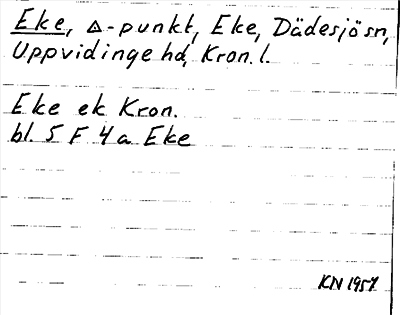 Eke, △-punkt, Eke, Dädesjösn,
Uppvidinge hd, Kron. l.
Eke ek Kron.
bl. 5 F 4 a Eke
KN 1957